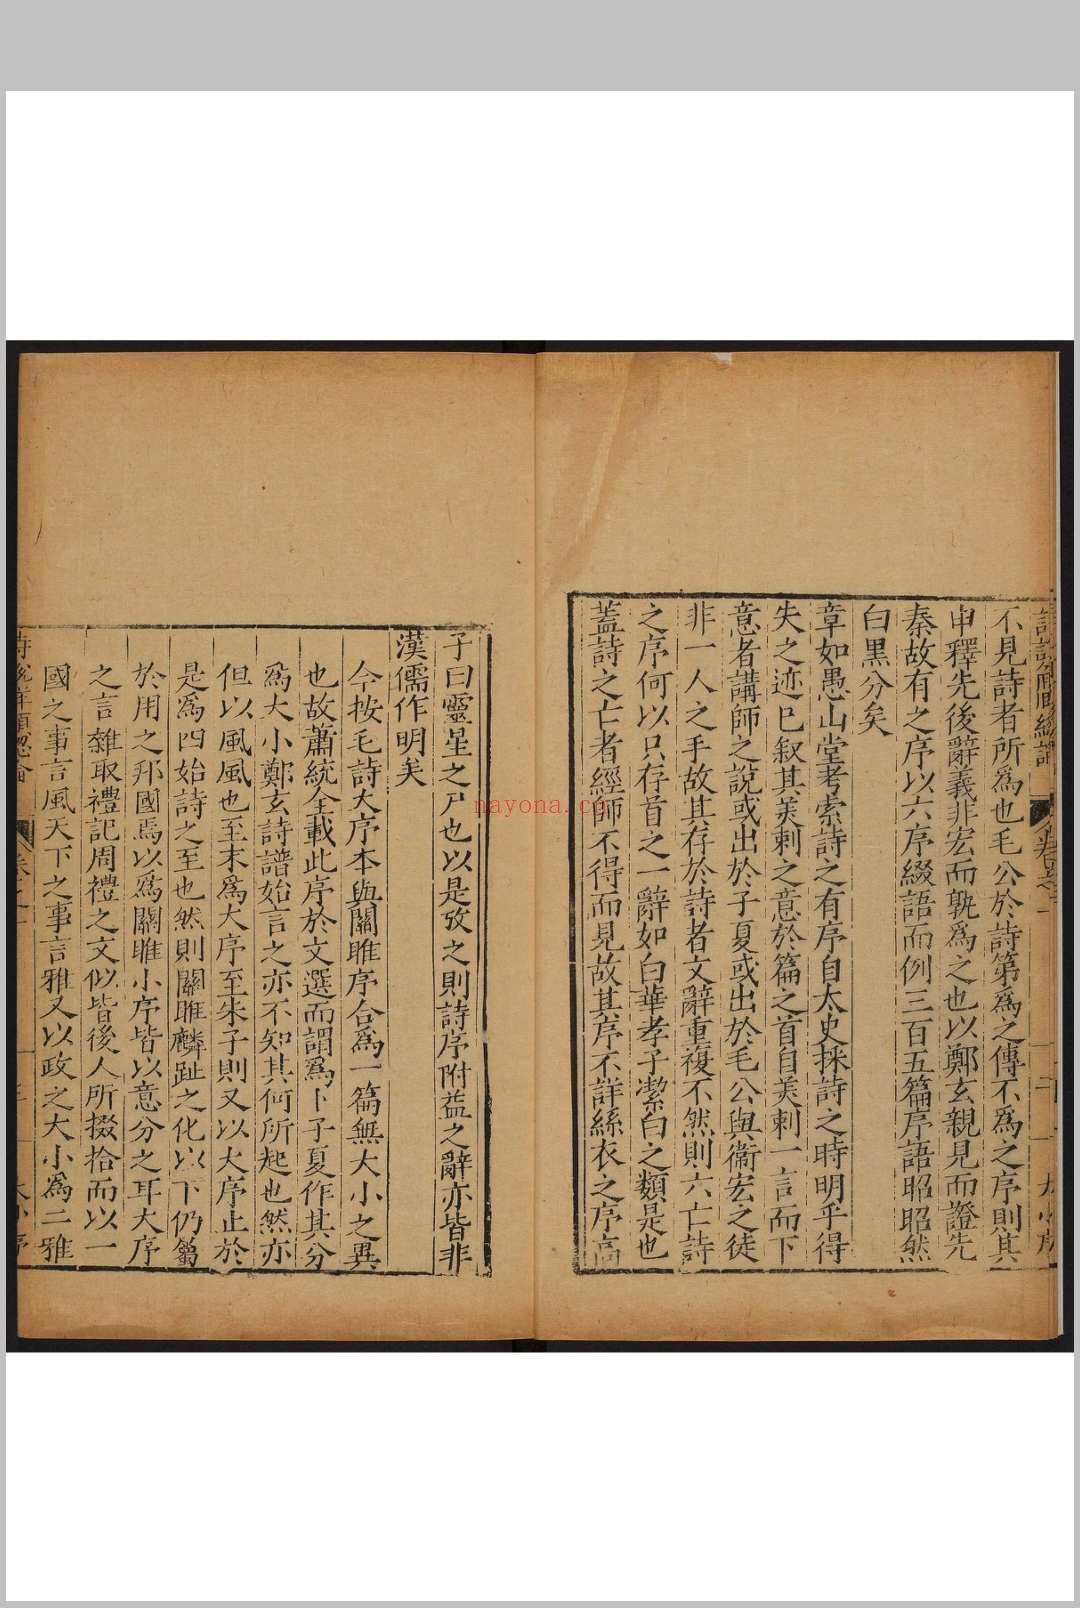 不見詩者所為也毛公於詩第為之傳不為之序則其
申釋先後辭義非宏而孰為之也以鄭玄親見而證先
秦故有之序以六序綴語而例三百五篇序語昭昭然
白黑分矣
章如愚山堂考索詩之有序自太史採詩之時明乎得
失之迹已叙其美刺之意於篇之首自美刺一言而下
意者講師之說或出於子夏或出於毛公與衞宏之徒
非一人之手故其存於詩者文辭重複不然則六亡詩
之序何以只存首之一辭如白華孝子潔白之類是也
蓋詩之亡者經師不得而見故其序不詳絲衣之序高
子曰靈星之尸也以是攷之則詩序附益之辭亦皆非
漢儒作明矣
今按毛詩大序本與關睢序合為一篇無大小之異
也故蕭統全載此序於文選而謂為卜子夏作其分
為大小鄭玄詩譜始言之亦不知其何所起也然亦
但以風風也至末為大序至朱子則又以大序止於
是為四始詩之至也然則關睢麟趾之化以下仍屬
於用之邦國焉以為關睢小序皆以意分之耳大序
之言雜取禮記周禮之文似皆後人所掇拾而以一
國之事言風天下之事言雅又以政之大小為二雅
nayona.cn